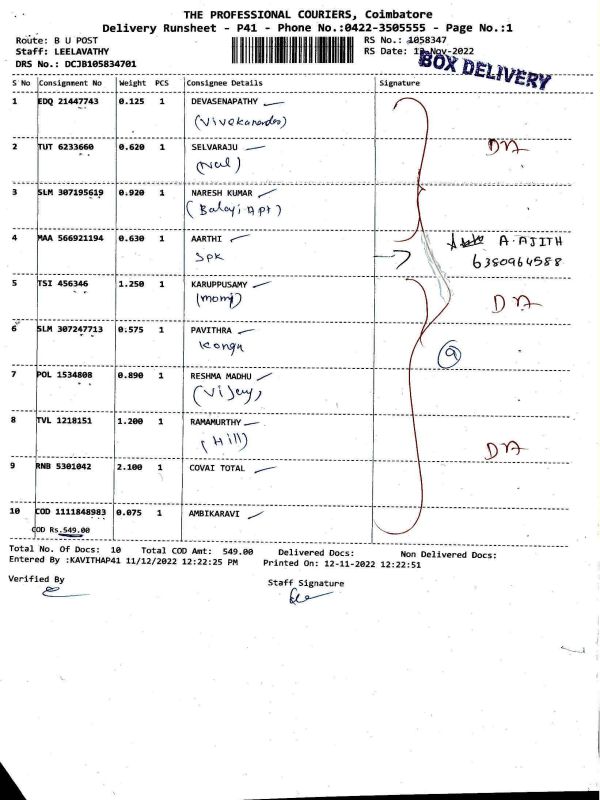 THE PROFESSIONAL COURIERS, Coimbatore
Delivery Runsheet - P41 - Phone No.:0422-3505555 - Page No.:1
Route: B U POST
RS No.: 1058347
Staff: LEELAVATHY
RS Date: 12-Nov-2022
DRS No.: DCJB105834701
BOX DELIVERY
S No Consignment No Weight PCS Consignee Details Signature
1 EDQ 21447743 0.125 1 DEVASENAPATHY
(Vivekanandas)
2 TUT 6233660 0.620 1 SELVARAJU
DN
3 SLM 307195619 0.920 1 NARESH KUMAR
(Balaji Apt)
4 MAA 566921194 0.630 1 AARTHI
A. AJITH
SPK
6380964588
5 TSI 456346 1.250 1 KARUPPUSAMY
(mom)
DN
6 SLM 307247713 0.575 1 PAVITHRA
Kongu
9
7 POL 1534808 0.890 1 RESHMA MADHU
(Vijay)
8 TVL 1218151 1.200 1 RAMAMURTHY
(Hill)
DN
9 RNB 5301042 2.100 1 COVAI TOTAL
10 COD 1111848983 0.075 1 AMBIKARAVI
COD Rs.549.00
Total No. Of Docs: 10 Total COD Amt: 549.00 Delivered Docs: Non Delivered Docs:
Entered By :KAVITHAP41 11/12/2022 12:22:25 PM Printed On: 12-11-2022 12:22:51
Verified By
Staff Signature